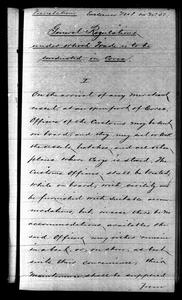 General Regulations
under which Trade is to be
conducted in Corea.
I
On the arrival of any Merchant
vessel at an open port of Corea,
Officers of the Customs may be put
on board, and they may
the vessel's hatches and any other
place where Cargo is stored. The
Customs Officers shall be treated,
while on board, with civility and
be furnished with suitable accom-
modation, but where there is no
accommodation available the
said Officers may either remain
in a boat or on shore, as best
suits their convenience; their
Maintenance shall be supplied
from